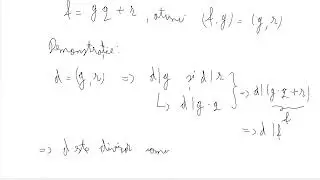 f = g q + r , atunci (f, g) = (g, r)
Demonstrație:
d = (g, r) => d | g și d | r => d | (g·q + r)
↳ d | g·q
f
=> d | f
=> d este divizor comu